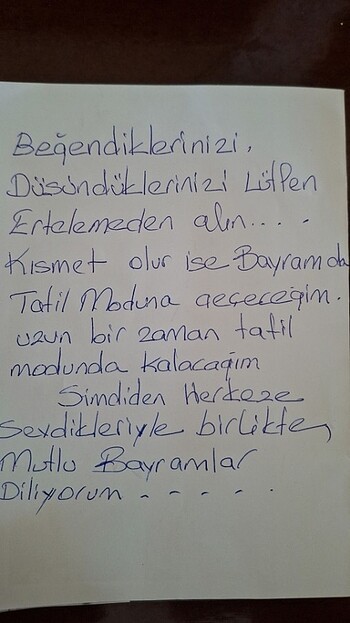 Beğendiklerinizi,
Düşündüklerinizi Lütfen
Ertelemeden alın....
Kısmet olur ise Bayramda
Tatil Moduna geçeceğim.
uzun bir zaman tatil
modunda kalacağım
Şimdiden Herkeze
Sevdikleriyle birlikte,
Mutlu Bayramlar
Diliyorum - - - - .